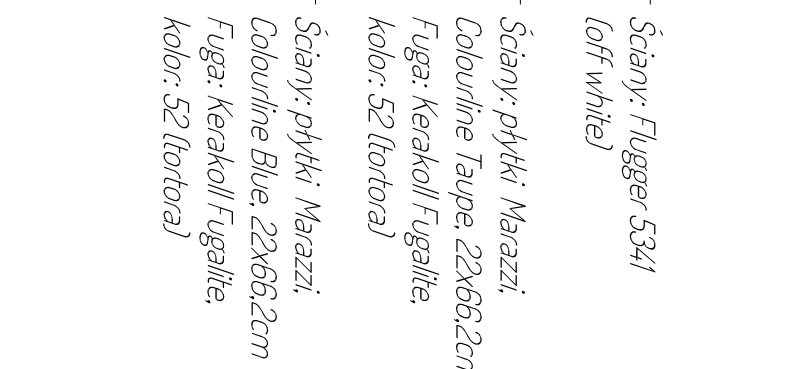 - Ściany: Flugger 5341
(off white)
- Ściany: płytki Marazzi,
Colourline Taupe, 22x66,2cm
Fuga: Kerakoll Fugalite,
kolor: 52 (tortora)
- Ściany: płytki Marazzi,
Colourline Blue, 22x66,2cm
Fuga: Kerakoll Fugalite,
kolor: 52 (tortora)